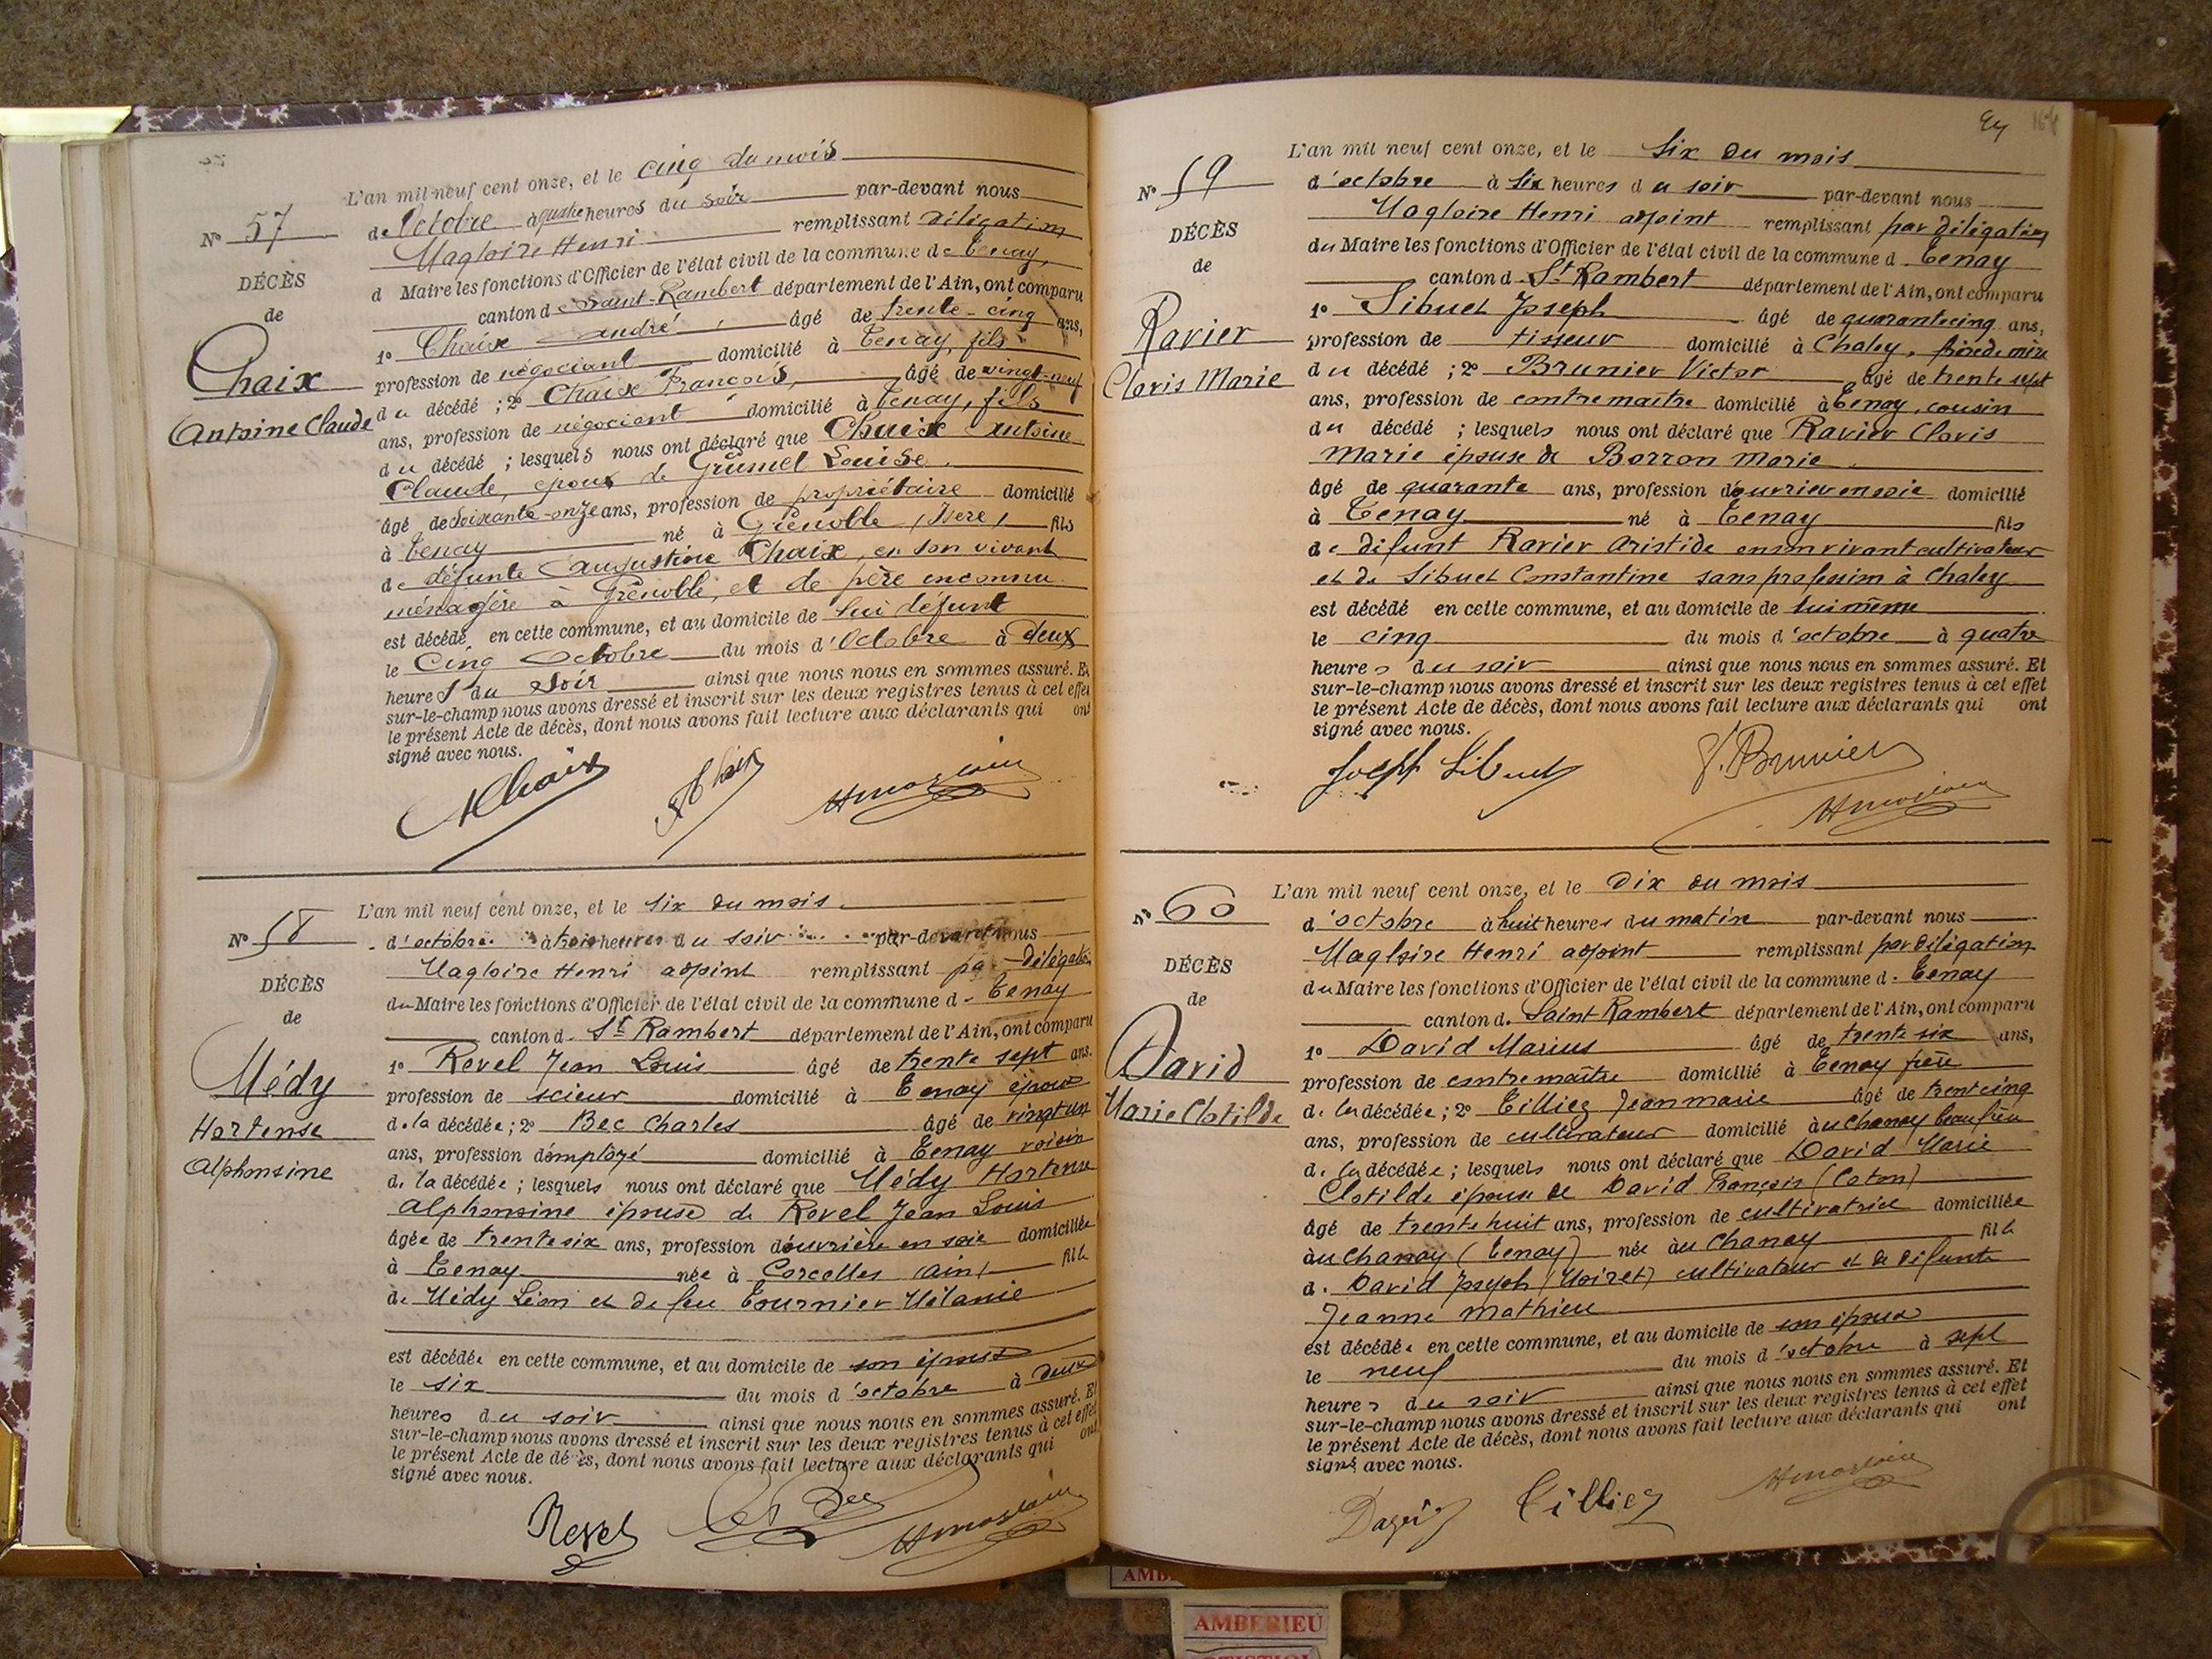 L'an mil neuf cent onze, et le cinq du mois
Nº 57
d'Octobre à quatre heures du soir par-devant nous
Magloire Henri remplissant délégation
DÉCÈS
d Maire les fonctions d'Officier de l'état civil de la commune de Tenay,
de
canton de Saint-Rambert département de l'Ain, ont comparu
1º Chaix André âgé de trente-cinq ans,
profession de négociant domicilié à Tenay, fils
Chaix
du décédé ; 2º Chaix François, âgé de vingt-neuf
Antoine Claude
ans, profession de négociant domicilié à Tenay, fils
du décédé ; lesquels nous ont déclaré que Chaix Antoine
Claude, époux de Grumel Louise.
âgé de soixante-onze ans, profession de propriétaire domicilié
à Tenay né à Grenoble (Isère) fils
de défunte Augustine Chaix, en son vivant
ménagère à Grenoble, et de père inconnu
est décédé en cette commune, et au domicile de lui défunt
le Cinq Octobre du mois d'Octobre à deux
heures du soir ainsi que nous nous en sommes assuré. Et
sur-le-champ nous avons dressé et inscrit sur les deux registres tenus à cet effet
le présent Acte de décès, dont nous avons fait lecture aux déclarants qui ont
signé avec nous.
AChaix
L'an mil neuf cent onze, et le six du mois.
Nº 58
d'octobre à trois heures du soir par-devant nous
Magloire Henri adjoint remplissant par délégation
DÉCÈS
du Maire les fonctions d'Officier de l'état civil de la commune de Tenay
de
canton de St Rambert département de l'Ain, ont comparu
1º Revel Jean Louis âgé de trente sept ans.
Médy
profession de scieur domicilié à Tenay époux
Hortense
de la décédée ; 2º Bec Charles âgé de vingt un
Alphonsine
ans, profession d'employé domicilié à Tenay voisin
de la décédée ; lesquels nous ont déclaré que Médy Hortense
Alphonsine épouse de Revel Jean Louis
âgée de trente six ans, profession d'ouvrière en soie domiciliée
à Tenay née à Corcelles (Ain) fille
de Médy Léon et de feu Tournier Mélanie
est décédée en cette commune, et au domicile de son époux
le six du mois d'octobre à deux
heures du soir ainsi que nous nous en sommes assuré. Et
sur-le-champ nous avons dressé et inscrit sur les deux registres tenus à cet effet
le présent Acte de décès, dont nous avons fait lecture aux déclarants qui ont
signé avec nous.
Revel
L'an mil neuf cent onze, et le six du mois
Nº 59
d'octobre à six heures du soir par-devant nous
Magloire Henri adjoint remplissant par délégation
DÉCÈS
du Maire les fonctions d'Officier de l'état civil de la commune d Tenay
de
canton d St Rambert département de l'Ain, ont comparu
1º Sibuet Joseph âgé de quarante cinq ans,
Ravier
profession de tisseur domicilié à Chaley, frère de mère
Clovis Marie
du décédé ; 2º Brunier Victor âgé de trente sept
ans, profession de contremaître domicilié à Tenay, cousin
du décédé ; lesquels nous ont déclaré que Ravier Clovis
Marie épouse de Borron Marie
âgé de quarante ans, profession d'ouvrier en soie domicilié
à Tenay né à Tenay fils
de défunt Ravier Aristide en son vivant cultivateur
et de Sibuet Constantine sans profession à Chaley
est décédé en cette commune, et au domicile de lui même
le cinq du mois d'octobre à quatre
heures du soir ainsi que nous nous en sommes assuré. Et
sur-le-champ nous avons dressé et inscrit sur les deux registres tenus à cet effet
le présent Acte de décès, dont nous avons fait lecture aux déclarants qui ont
signé avec nous.
Joseph Sibuet V. Brunier
L'an mil neuf cent onze, et le dix du mois
Nº 60
d'octobre à huit heures du matin par-devant nous
Magloire Henri adjoint remplissant par délégation
DÉCÈS
du Maire les fonctions d'Officier de l'état civil de la commune d. Tenay
de
canton d. Saint Rambert département de l'Ain, ont comparu
1º David Marius âgé de trente six ans,
David
profession de contremaître domicilié à Tenay frère
Marie Clotilde
de la décédée ; 2º Tilliez Jean marie âgé de trente cinq
ans, profession de cultivateur domicilié au Chanay beau frère
de la décédée ; lesquels nous ont déclaré que David Marie
Clotilde épouse de David François (Coton)
âgé de trente huit ans, profession de cultivatrice domiciliée
au Chanay (Tenay) née au Chanay fille
d. David Joseph (Moiret) cultivateur et de défunte
Jeanne Mathieu
est décédée en cette commune, et au domicile de son époux
le neuf du mois d'octobre à sept
heures du soir ainsi que nous nous en sommes assuré. Et
sur-le-champ nous avons dressé et inscrit sur les deux registres tenus à cet effet
le présent Acte de décès, dont nous avons fait lecture aux déclarants qui ont
signé avec nous.
David Tilliez
AMBERIEU